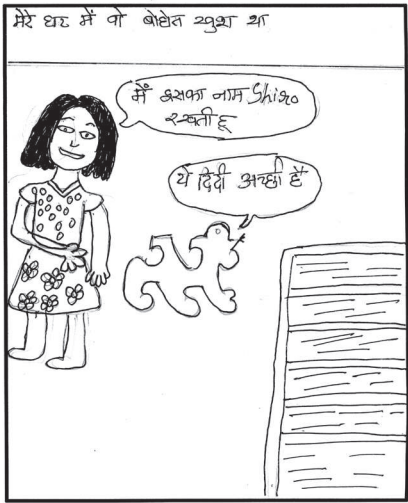 मेरे घर में वो बोहोत खुश था
में इसका नाम Shiro
रखती हू
ये दिदी अच्छी है